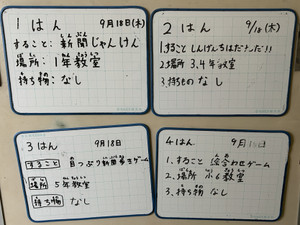 1はん 9月18日(木)
すること:新聞じゃんけん
場所:1年教室
持ち物:なし
2はん 9/18(木)
1.すること しんげんちはだれだ!!
2.場所 3.4年教室
3.持ちもの なし
3はん 9月18日
すること 目つぶり新聞
ゲーム
場所 5年教室
持ち物 なし
4はん 9月18日
1.すること
ゲーム
2.場所 6教室
3.持ち物 なし